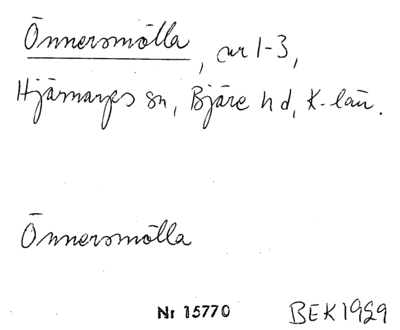 Önnersmölla, nr 1-3,
Hjärnarps sn, Bjäre hd, K-län.
Önnersmölla
Nr 15770 BEK 1929